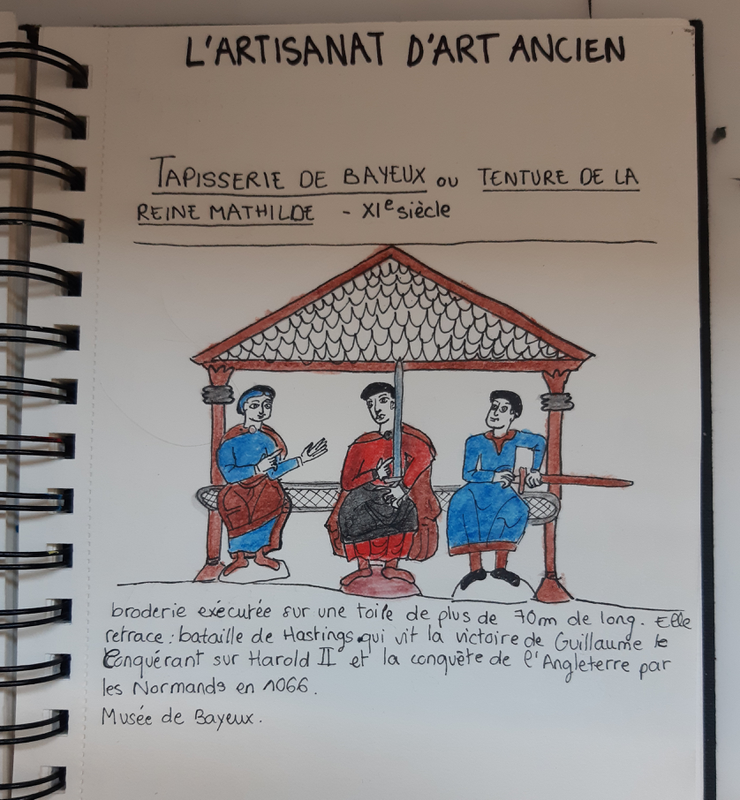 L'ARTISANAT D'ART ANCIEN
TAPISSERIE DE BAYEUX OU TENTURE DE LA
REINE MATHILDE - XIe siècle
broderie exécutée sur une toile de plus de 70m de long. Elle
retrace : bataille de Hastings qui vit la victoire de Guillaume le
Conquérant sur Harold II et la conquète de l'Angleterre par
les Normands en 1066.
Musée de Bayeux.